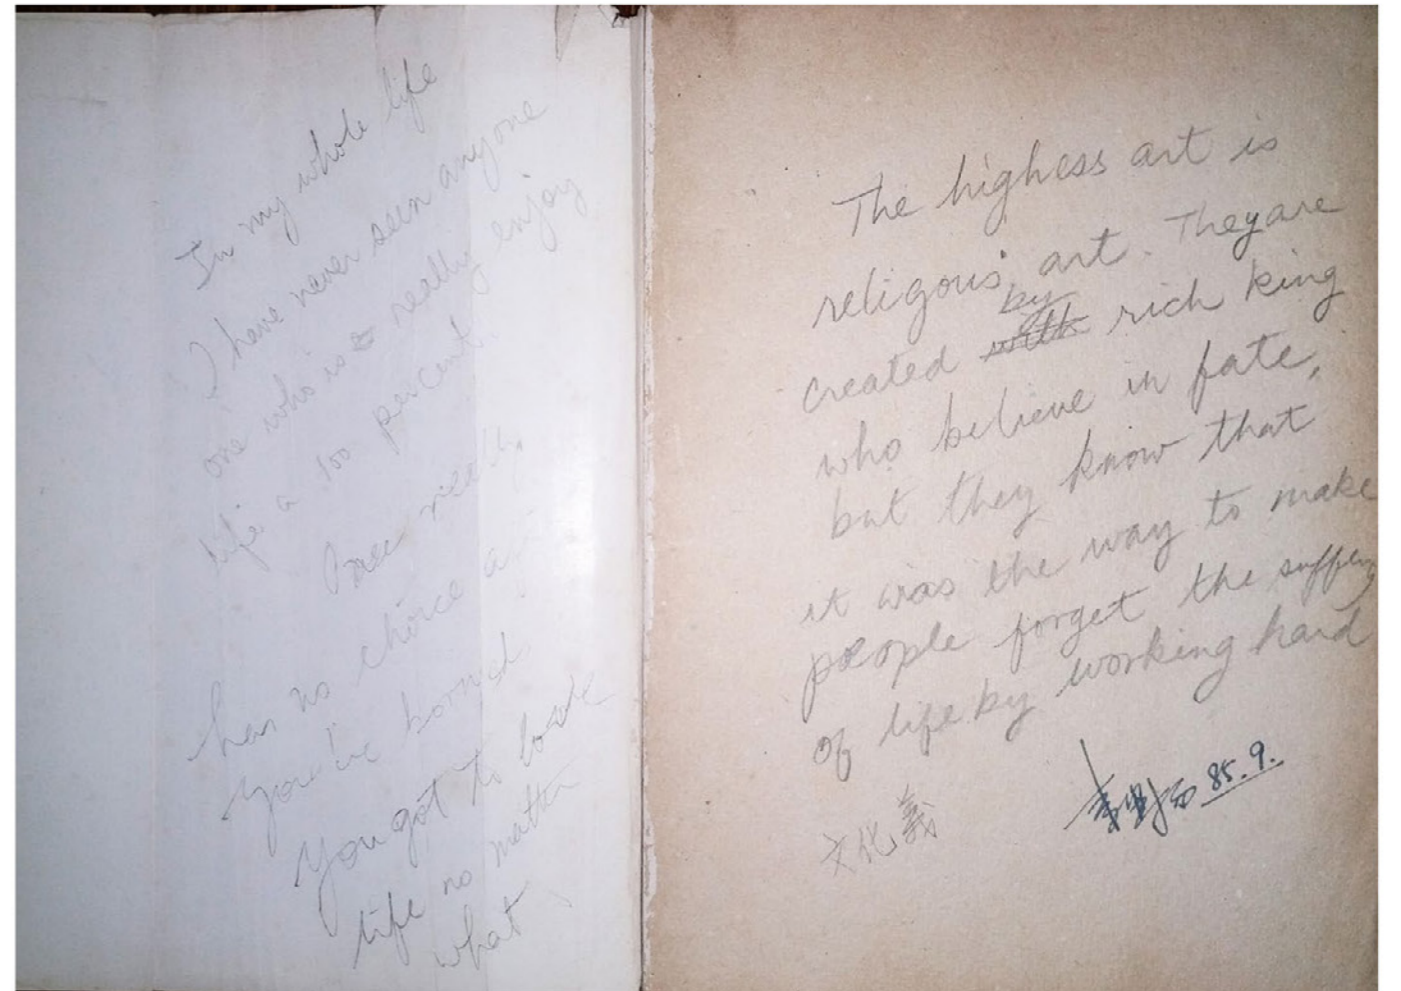 In my whole life
I have never seen anyone
one who is really enjoy
life a 100 percent.
really
has no choice
you've bornd
You got to
life no matter
what
The highess art is
religous art. They are
by
created with rich king
who believe in fate,
but they know that
it was the way to make
people forget the suffering
of life by working hard
文化義
85.9.